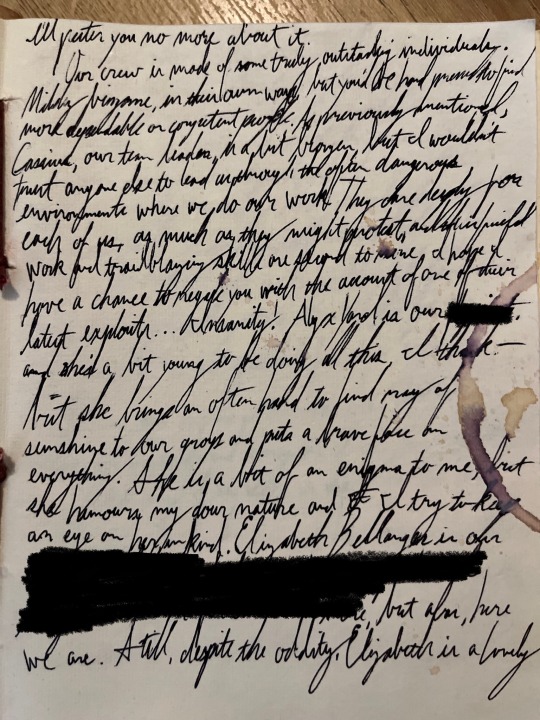 I'll pester you no more about it.
Our crew is made of some truly outstanding individuals.
Mildly bizarre, in their own way, but you'd be hard pressed to find
more dependable or competent people. As previously mentioned,
Cassius, our team leader, is a bit brazen, but I wouldn't
trust anyone else to lead us through the often dangerous
environments where we do our work. They care deeply for
each of us, as much as they might protest, and their
work and trailblazing skills are second to none. I hope I
have a chance to regale you with the account of one of their
latest exploits... Insanity! is our
and she's a bit young to be doing all this, I think—
but she brings an often hard to find ray of
sunshine to our group and puts a brave face on
everything. She is a bit of an enigma to me, but
she humours my dour nature and I try to keep
an eye on her in kind. Elizabeth Bellanger is our
but alas, here
we are. Still, despite the oddity, Elizabeth is a lovely